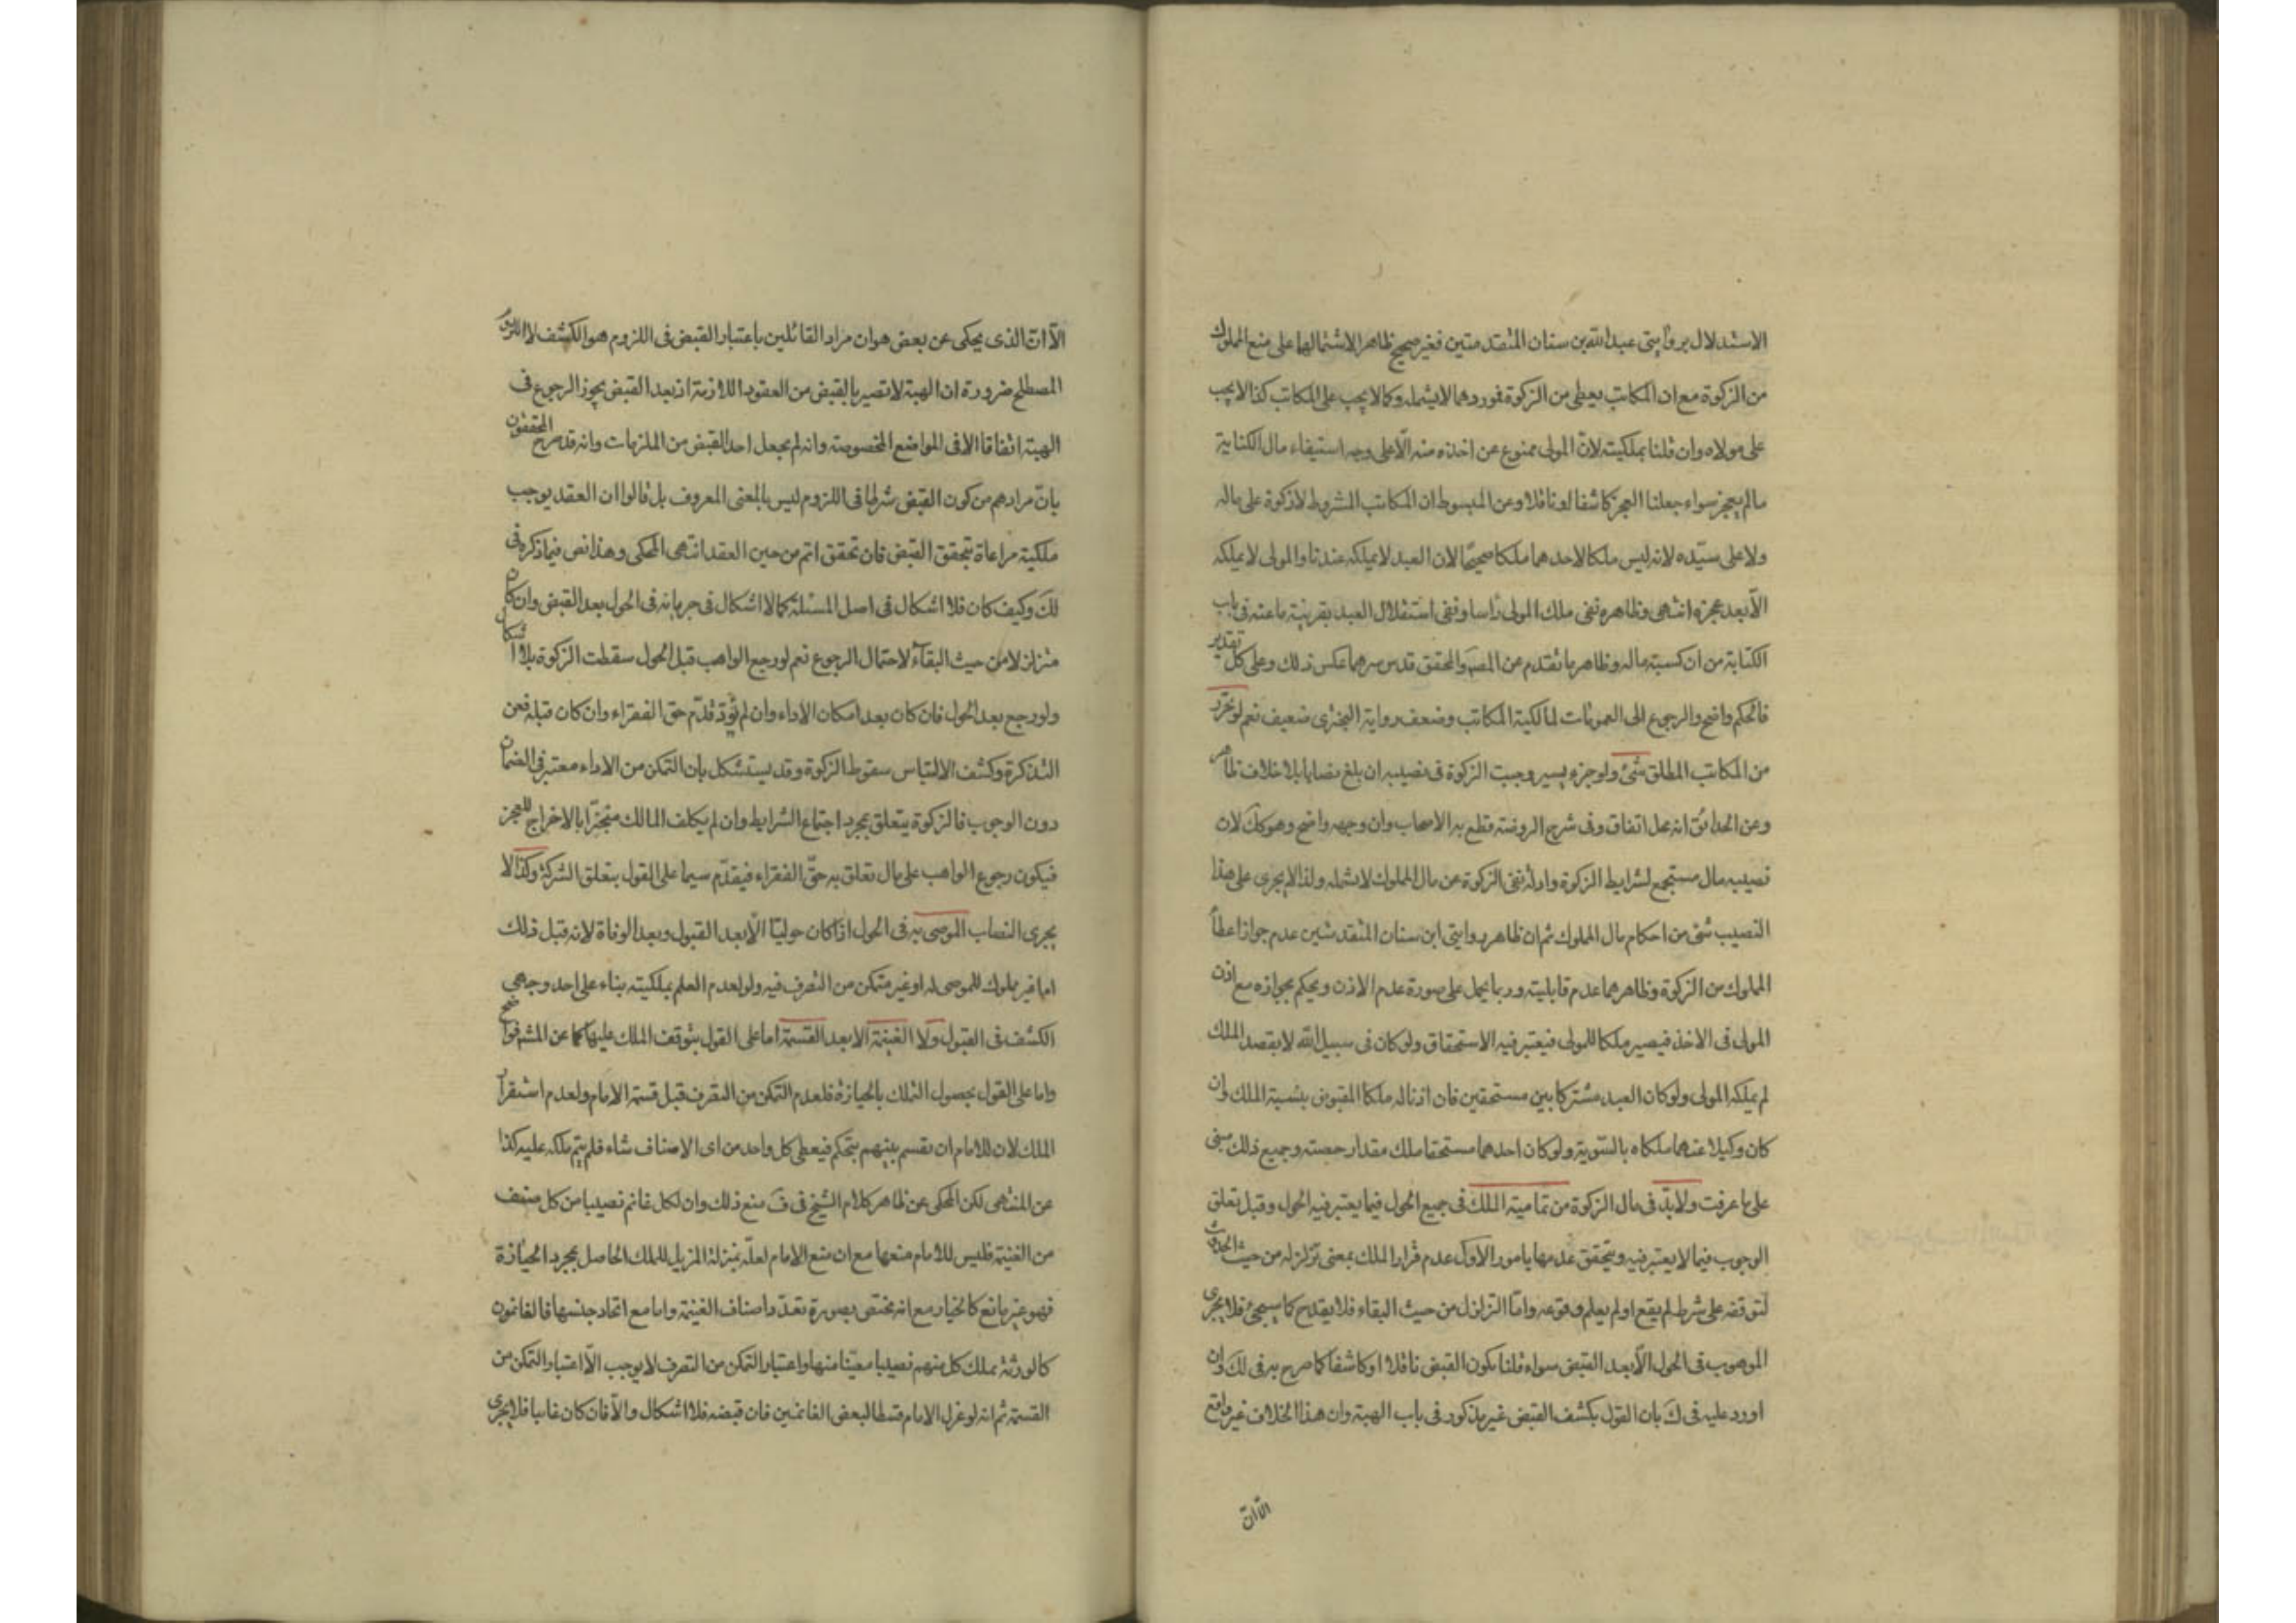 الاستدلال بروايتى عبدالله بن سنان المتقدمتين فغير صحيح ظاهرا لاشتمالهما على منع المملوك
من الزكوة مع ان المكاتب يعطى من الزكوة فموردهما لا يشمله وكما لا يجب على المكاتب كذا لا يجب
على مولاه وان قلنا بملكيته لانّ المولى ممنوع عن اخذه منه الّا على وجه استيفاء مال الكتابة
مالم يعجز سواء جعلنا العجز كاشفا او ناقلا وعن المبسوط ان المكاتب المشروط لا زكوة على ماله
ولا على سيّده لانه ليس ملكا لاحدهما ملكا صحيحًا لان العبد لا يملكه عندنا والمولى لا يملكه
الّا بعد عجزه انتهى وظاهره نفى ملك المولى رأسا ونفى استقلال العبد بقرينة ما عنه فى باب
الكتابة من ان كسبه ماله وظاهر ما تقدم من المصَ والمحقق قدس سرهما عكس ذلك وعلى كل تقدير
فالحكم واضح والرجوع الى العمومات لمالكية المكاتب وضعف رواية البخترى ضعيف نعم لو تحرّر
من المكاتب المطلق شئ ولو جزء يسير وجبت الزكوة فى نصيبه ان بلغ نصابا بلا خلاف ظاهر
وعن الحدائق انه محل اتفاق وفى شرح الروضة قطع به الاصحاب وان وجهه واضح وهو كك لان
نصيبه مال مستجمع لشرايط الزكوة وادلة نفى الزكوة عن مال المملوك لا تشمله ولذا لا يجرى على هذا
النصيب شئ من احكام مال المملوك ثم ان ظاهر روايتى ابن سنان المتقدمتين عدم جواز اعطأ
المملوك من الزكوة وظاهرهما عدم قابليته وربما يحمل على صورة عدم الاذن ويحكم بجوازه مع اذن
المولى فى الاخذ فيصير ملكا للمولى فيعتبر فيه الاستحقاق ولو كان فى سبيل الله لا بقصد الملك
لم يملكه المولى ولو كان العبد مشتركا بين مستحقين فان اذنا له ملكا المقبوض بنسبة الملك وان
كان وكيلا عنهما ملكاه بالسّوية ولو كان احدهما مستحقا ملك مقدار حصته وجميع ذلك مبنى
على ما عرفت ولابدّ فى مال الزكوة من تمامية الملك فى جميع الحول فيما يعتبر فيه الحول وقبل تعلق
الوجوب فيما لا يعتبر فيه ويتحقق عدمها بامور الاول عدم قرار الملك بمعنى تزلزله من حيث الحدوث
لتوقفه على شرط لم يقع او لم يعلم وقوعه وامّا التزلزل من حيث البقاء فلا يقدح كما سيجئ فلا يجرى
الموهوب فى الحول الّا بعد القبض سواء قلنا بكون القبض ناقلا او كاشفا كما صرح به فى لك وان
اورد عليه فى ك بان القول بكشف القبض غير مذكور فى باب الهبة وان هذا الخلاف غير واقع
الّا انّ
الّا انّ الذى يحكى عن بعض هو ان مراد القائلين باعتبار القبض فى اللزوم هو الكشف لا اللزوم
المصطلح ضرورة ان الهبة لا تصير بالقبض من العقود اللازمة اذ بعد القبض يجوز الرجوع فى
الهبة اتفاقا الا فى المواضع المخصوصة وانه لم يجعل احد القبض من الملزمات وانه قد صرح المحققون
بانّ مرادهم من كون القبض شرطا فى اللزوم ليس بالمعنى المعروف بل قالوا ان العقد يوجب
ملكية مراعاة بتحقق القبض فان تحقق اتم من حين العقد انتهى المحكى وهذا نص فيما ذكره فى
لك وكيف كان فلا اشكال فى اصل المسئلة كما لا اشكال فى جريانه فى الحول بعد القبض وان كان
متزلزلا من حيث البقآء لاحتمال الرجوع نعم لو رجع الواهب قبل الحول سقطت الزكوة بلا اشكال
ولو رجع بعد الحول فان كان بعد امكان الاداء وان لم يؤدّ قدّم حق الفقراء وان كان قبله فعن
التذكرة وكشف الالتباس سقوط الزكوة وقد يستشكل بان التمكن من الاداء معتبر فى الضمان
دون الوجوب فالزكوة يتعلق بمجرد اجتماع الشرايط وان لم يكلف المالك منجّزا بالاخراج للعجز
فيكون رجوع الواهب على مال تعلق به حقّ الفقراء فيقدّم سيما على القول بتعلق الشركة وكذا لا
يجرى النصاب الموصى به فى الحول اذا كان حوليّا الّا بعد القبول وبعد الوفاة لانه قبل ذلك
اما غير مملوك للموصى له او غير متمكن من التصرف فيه ولو لعدم العلم بملكيته بناء على احد وجهى
الكشف فى القبول ولا الغنيمة الا بعد القسمة اما على القول بتوقف الملك عليها كما عن المشهور فواضح
واما على القول بحصول التملك بالحيازة فلعدم التمكن من التصرف قبل قسمة الامام ولعدم استقرار
الملك لان للامام ان يقسم بينهم بتحكم فيعطى كل واحد من اى الاصناف شاء فلم يتم ملكه عليه كذا
عن المنتهى لكن المحكى عن ظاهر كلام الشيخ فى ف منع ذلك وان لكل غانم نصيبا من كل صنف
من الغنيمة فليس للامام منعها مع ان منع الامام لعلّه بمنزلة المزيل للملك الحاصل بمجرد الحيازة
فهو غير مانع كالخيار مع انه مختص بصورة تعدّد اصناف الغنيمة واما مع اتحاد جنسها فالغانمون
كالورثة يملك كل منهم نصيبا معيّنا منها واعتبار التمكن من التصرف لا يوجب الّا اعتبار التمكن من
القسمة ثم انه لو عزل الامام قسطا لبعض الغانمين فان قبضه فلا اشكال والّا فان كان غايبا فلا يجرى